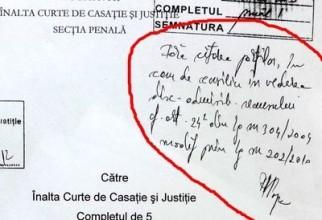 ÎNALTA CURTE DE CASAȚIE ȘI JUSTIȚIE
SECȚIA PENALĂ
COMPLETUL
SEMNATURA
Fără citarea părților, în
cam. de consiliu în vederea
disc. admisib. recursului
cf. art. 24² din Lg nr 304/2004
modif prin Lg nr 202/2010
Justiție
Către
Înalta Curte de Casație și Justiție
Completul de 5